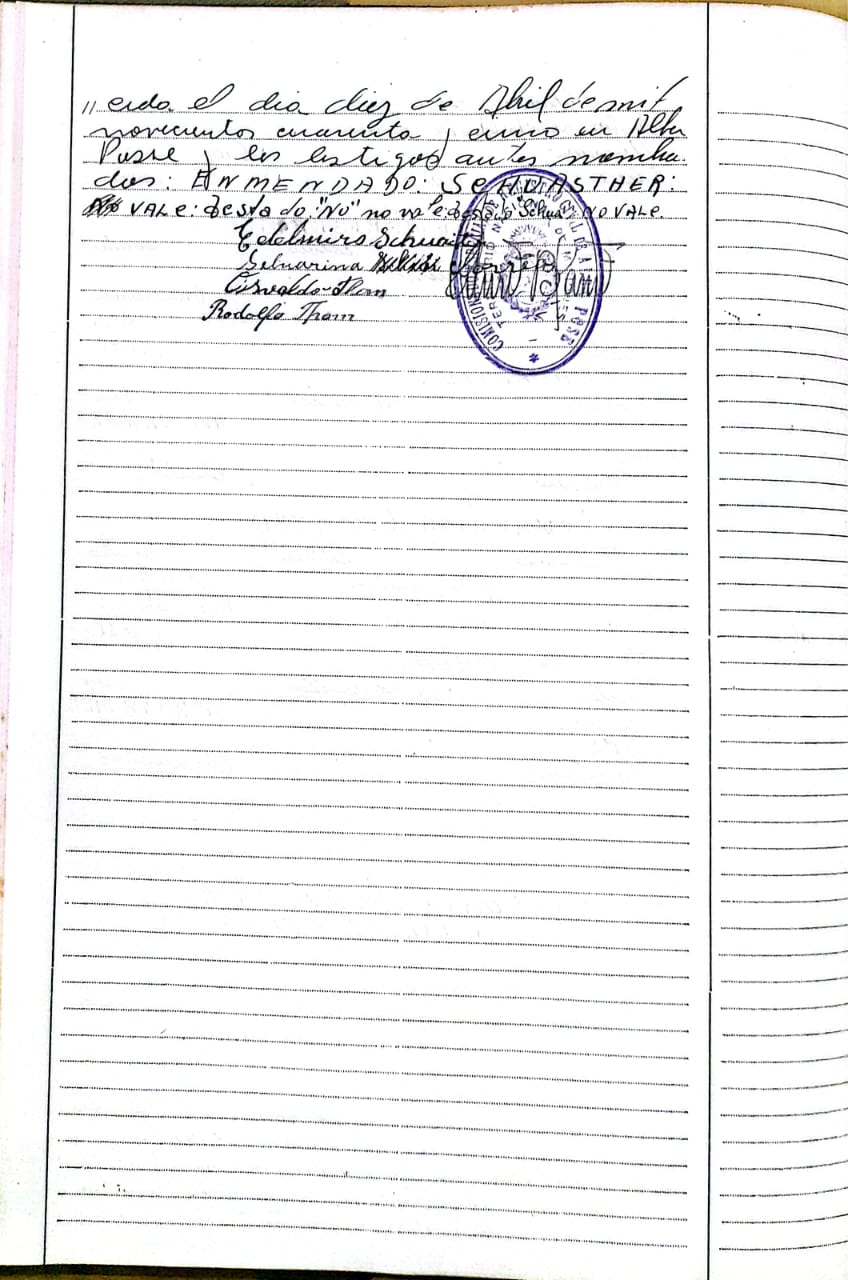 "cida el dia diez de Abril de mil
novecientos cuarenta y cinco en Alba
Posse y los testigos antes nombra
dos: ENMENDADO: SCHUASTHER:
VALE: Testado: "No" no vale: Testado "Schua" NO VALE.
Edelmiro
Seluarina
Osvaldo Tham
Rodolfo Tham
COMISION